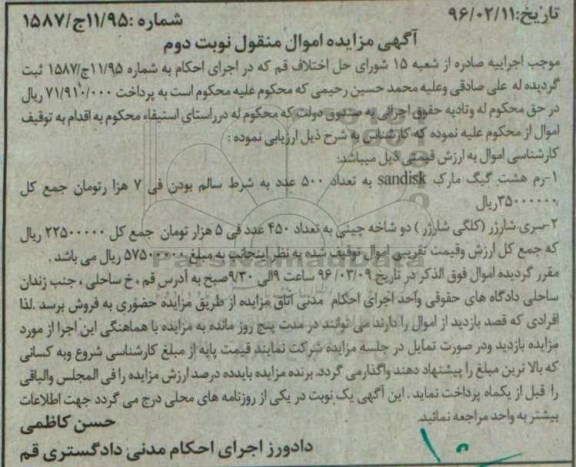 تاریخ:۹۶/۰۲/۱۱ شماره :۱۱/۹۵ج/۱۵۸۷
آگهی مزایده اموال منقول نوبت دوم
موجب اجراییه صادره از شعبه ۱۵ شورای حل اختلاف قم که در اجرای احکام به شماره ۱۱/۹۵ج/۱۵۸۷ ثبت
گردیده له علی صادقی وعلیه محمد حسین رحیمی که محکوم علیه محکوم است به پرداخت ۷۱/۹۱۰/۰۰۰ ریال
در حق محکوم له وتادیه حقوق اجرائی به صندوق دولت که محکوم له درراستای استیفاء محکوم به اقدام به توقیف
اموال از محکوم علیه نموده که کارشناس به شرح ذیل ارزیابی نموده :
کارشناسی اموال به ارزش قیمتی ذیل میباشد:
۱-رم هشت گیگ مارک sandisk به تعداد ۵۰۰ عدد به شرط سالم بودن فی ۷ هزا رتومان جمع کل
۳۵۰۰۰۰۰۰ریال
۲-سری شارژر (کلگی شارژر ) دو شاخه چینی به تعداد ۴۵۰ عدد فی ۵ هزار تومان جمع کل ۲۲۵۰۰۰۰۰ ریال
که جمع کل ارزش وقیمت تقریبی اموال توقیف شده به نظر اینجانب به مبلغ ۵۷۵۰۰۰۰۰ ریال می باشد .
مقرر گردیده اموال فوق الذکر در تاریخ ۹۶/۰۳/۰۹ ساعت ۹الی ۹/۳۰صبح به آدرس قم ، خ ساحلی ، جنب زندان
ساحلی دادگاه های حقوقی واحد اجرای احکام مدنی اتاق مزایده از طریق مزایده حضوری به فروش برسد .لذا
افرادی که قصد بازدید از اموال را دارند می توانند در مدت پنج روز مانده به مزایده با هماهنگی این اجرا از مورد
مزایده بازدید ودر صورت تمایل در جلسه مزایده شرکت نمایند قیمت پایه از مبلغ کارشناسی شروع وبه کسانی
که بالا ترین مبلغ را پیشنهاد دهند واگذارمی گردد. برنده مزایده بایدده درصد ارزش مزایده را فی المجلس والباقی
را قبل از یکماه پرداخت نماید . این آگهی یک نوبت در یکی از روزنامه های محلی درج می گردد جهت اطلاعات
بیشتر به واحد مراجعه نمائید.
حسن کاظمی
دادورز اجرای احکام مدنی دادگستری قم